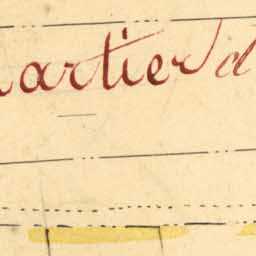 uartier d